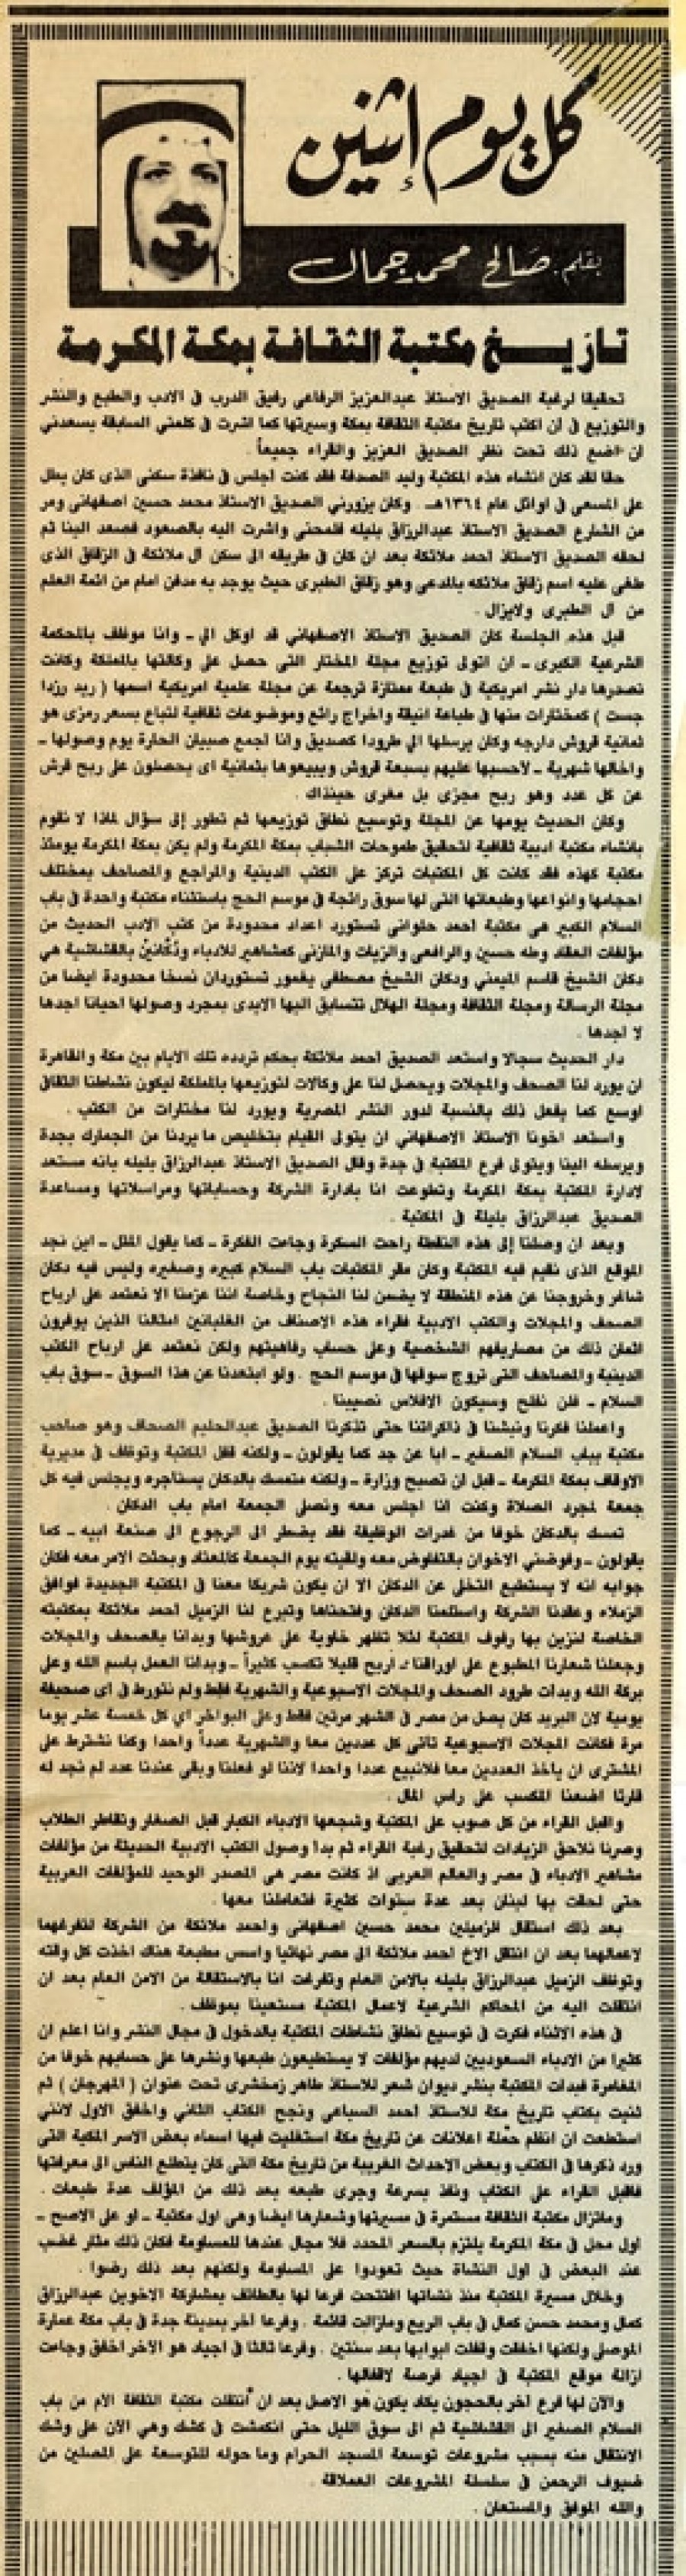 كل يوم إثنين
بقلم: صالح محمد جمال
تاريخ مكتبة الثقافة بمكة المكرمة
تحقيقا لرغبة الصديق الاستاذ عبدالعزيز الرفاعي رفيق الدرب في الادب والطبع والنشر
والتوزيع في أن اكتب تاريخ مكتبة الثقافة بمكة وسيرتها كما اشرت في كلمتي السابقة يسعدني
ان اضع ذلك تحت نظر الصديق العزيز والقراء جميعاً .
حقا لقد كان انشاء هذه المكتبة وليد الصدفة فقد كنت اجلس في نافذة سكني الذى كان يطل
على المسعى في اوائل عام ١٣٦٤هـ وكان يزورني الصديق الاستاذ محمد حسين اصفهاني ومر
من الشارع الصديق الاستاذ عبدالرزاق بليله فلمحني واشرت اليه بالصعود فصعد الينا ثم
لحقه الصديق الاستاذ احمد ملائكة بعد ان كان في طريقه الى سكن ال ملائكة في الزقاق الذى
طغى عليه اسم زقاق ملائكه بالمدعى وهو زقاق الطبرى حيث يوجد به مدفن امام من ائمة العلم
من آل الطبرى ولايزال .
قبل هذه الجلسة كان الصديق الاستاذ الاصفهاني قد اوكل الي - وانا موظف بالمحكمة
الشرعية الكبرى - ان اتولى توزيع مجلة المختار التى حصل على وكالتها بالمملكة وكانت
تصدرها دار نشر امريكية في طبعة ممتازة ترجمة عن مجلة علمية امريكية اسمها ( ريد رزدا
جست ) كمختارات منها في طباعة انيقة واخراج رائع وموضوعات ثقافية لتباع بسعر رمزى هو
ثمانية قروش دارجه وكان يرسلها الي طرودا كصديق وانا اجمع صبيان الحارة يوم وصولها -
واخالها شهرية - لاحسبها عليهم بسبعة قروش ويبيعوها بثمانية اى يحصلون على ربح قرش
عن كل عدد وهو ربح مجزى بل مغرى حينذاك .
وكان الحديث يومها عن المجلة وتوسيع نطاق توزيعها ثم تطور إلى سؤال لماذا لا نقوم
بانشاء مكتبة ادبية ثقافية لتحقيق طموحات الشباب بمكة المكرمة ولم يكن بمكة المكرمة يومئذ
مكتبة كهذه فقد كانت كل المكتبات تركز على الكتب الدينية والمراجع والمصاحف بمختلف
احجامها وانواعها وطبعاتها التى لها سوق رائجة في موسم الحج باستثناء مكتبة واحدة في باب
السلام الكبير هي مكتبة احمد حلوانى تستورد اعداد محدودة من كتب الادب الحديث من
مؤلفات العقاد وطه حسين والرافعى والزيات والمازنى كمشاهير للادباء ودكانين بالقشاشية هي
دكان الشيخ قاسم الميمني ودكان الشيخ مصطفى يغمور تستوردان نسخا محدودة ايضا من
مجلة الرسالة ومجلة الثقافة ومجلة الهلال تتسابق اليها الايدى بمجرد وصولها احيانا اجدها
لا اجدها .
دار الحديث سجالا واستعد الصديق احمد ملائكة بحكم تردده تلك الايام بين مكة والقاهرة
ان يورد لنا الصحف والمجلات ويحصل لنا على وكالات لتوزيعها بالمملكة ليكون نشاطنا الثقافي
اوسع كما يفعل ذلك بالنسبة لدور النشر المصرية ويورد لنا مختارات من الكتب .
واستعد اخونا الاستاذ الاصفهاني ان يتولى القيام بتخليص ما يردنا من الجمارك بجدة
ويرسله الينا ويتولى فرع المكتبة في جدة وقال الصديق الاستاذ عبدالرزاق بليله بانه مستعد
لادارة المكتبة بمكة المكرمة وتطوعت انا بادارة الشركة وحساباتها ومراسلاتها ومساعدة
الصديق عبدالرزاق بليلة في المكتبة .
وبعد ان وصلنا إلى هذه النقطة راحت السكرة وجاءت الفكرة - كما يقول المثل - اين نجد
الموقع الذى نقيم فيه المكتبة وكان مقر المكتبات باب السلام كبيره وصغيره وليس فيه دكان
شاغر وخروجنا عن هذه المنطقة لا يضمن لنا النجاح وخاصة اننا عزمنا الا نعتمد على ارباح
الصحف والمجلات والكتب الادبية فقراء هذه الاصناف من الغلبانين امثالنا الذين يوفرون
اثمان ذلك من مصاريفهم الشخصية وعلى حساب رفاهيتهم ولكن نعتمد على ارباح الكتب
الدينية والمصاحف التى تروج سوقها في موسم الحج . ولو ابتعدنا عن هذا السوق - سوق باب
السلام - فلن نفلح وسيكون الافلاس نصيبنا .
واعملنا فكرنا ونبشنا في ذاكراتنا حتى تذكرنا الصديق عبدالحليم الصحاف وهو صاحب
مكتبة بباب السلام الصغير - ابا عن جد كما يقولون - ولكنه قفل المكتبة وتوظف في مديرية
الاوقاف بمكة المكرمة - قبل ان تصبح وزارة - ولكنه متمسك بالدكان يستأجره ويجلس فيه كل
جمعة لمجرد الصلاة وكنت انا اجلس معه ونصلى الجمعة امام باب الدكان .
تمسك بالدكان خوفا من غدرات الوظيفة فقد يضطر الى الرجوع الى صنعة ابيه - كما
يقولون - وفوضني الاخوان بالتفاوض معه ولقيته يوم الجمعة كالمعتاد وبحثت الامر معه فكان
جوابه انه لا يستطيع التخلى عن الدكان الا ان يكون شريكا معنا في المكتبة الجديدة فوافق
الزملاء وعقدنا الشركة واستلمنا الدكان وفتحناها وتبرع لنا الزميل احمد ملائكة بمكتبته
الخاصة لنزين بها رفوف المكتبة لئلا تظهر خاوية على عروشها وبدانا بالصحف والمجلات
وجعلنا شعارنا المطبوع على اوراقنا : اربح قليلا تكسب كثيراً - وبدانا العمل باسم الله وعلى
بركة الله وبدات طرود الصحف والمجلات الاسبوعية والشهرية فقط ولم نتورط في اى صحيفة
يومية لان البريد كان يصل من مصر في الشهر مرتين فقط وعلى البواخر اي كل خمسة عشر يوما
مرة فكانت المجلات الاسبوعية تأتى كل عددين معا والشهرية عدداً واحدا وكنا نشترط على
المشترى ان يأخذ العددين معا فلانبيع عددا واحدا لاننا لو فعلنا وبقى عندنا عدد لم نجد له
قارئا اضعنا المكسب على رأس المال .
واقبل القراء من كل صوب على المكتبة وشجعها الادباء الكبار قبل الصغار وتقاطر الطلاب
وصرنا نلاحق الزيادات لتحقيق رغبة القراء ثم بدا وصول الكتب الادبية الحديثة من مؤلفات
مشاهير الادباء في مصر والعالم العربى اذ كانت مصر هى المصدر الوحيد للمؤلفات العربية
حتى لحقت بها لبنان بعد عدة سنوات كثيرة فتعاملنا معها .
بعد ذلك استقال الزميلين محمد حسين اصفهانى واحمد ملائكة من الشركة لتفرغهما
لاعمالهما بعد ان انتقل الاخ احمد ملائكة الى مصر نهائيا واسس مطبعة هناك اخذت كل وقته
وتوظف الزميل عبدالرزاق بليله بالامن العام وتفرغت انا بالاستقالة من الامن العام بعد ان
انتقلت اليه من المحاكم الشرعية لاعمال المكتبة مستعينا بموظف .
في هذه الاثناء فكرت في توسيع نطاق نشاطات المكتبة بالدخول في مجال النشر وانا اعلم ان
كثيرا من الادباء السعوديين لديهم مؤلفات لا يستطيعون طبعها ونشرها على حسابهم خوفا من
المغامرة فبدات المكتبة بنشر ديوان شعر للاستاذ طاهر زمخشرى تحت عنوان ( المهرجان ) ثم
ثنيت بكتاب تاريخ مكة للاستاذ احمد السباعي ونجح الكتاب الثاني واخفق الاول لانني
استطعت ان انظم حملة اعلانات عن تاريخ مكة استغليت فيها اسماء بعض الاسر المكية التى
ورد ذكرها في الكتاب وبعض الاحداث الغريبة من تاريخ مكة التى كان يتطلع الناس الى معرفتها
فاقبل القراء على الكتاب ونفذ بسرعة وجرى طبعه بعد ذلك من المؤلف عدة طبعات .
وماتزال مكتبة الثقافة مستمرة في مسيرتها وشعارها ايضا وهى اول مكتبة - او على الاصح -
اول محل في مكة المكرمة يلتزم بالسعر المحدد فلا مجال عندها للمساومة فكان ذلك مثار غضب
عند البعض في اول النشاة حيث تعودوا على المساومة ولكنهم بعد ذلك رضوا .
وخلال مسيرة المكتبة منذ نشاتها افتتحت فرعا لها بالطائف بمشاركة الاخوين عبدالرزاق
كمال ومحمد حسن كمال في باب الريع ومازالت قائمة . وفرعا اخر بمدينة جدة في باب مكة عمارة
الموصلى ولكنها اخفقت وقفلت ابوابها بعد سنتين . وفرعا ثالثا في اجياد هو الآخر اخفق وجاءت
ازالة موقع المكتبة في اجياد فرصة لاقفالها .
والآن لها فرع آخر بالحجون يكاد يكون هو الاصل بعد ان انتقلت مكتبة الثقافة الأم من باب
السلام الصغير الى القشاشية ثم الى سوق الليل حتى انكمشت في كشك وهى الآن على وشك
الانتقال منه بسبب مشروعات توسعة المسجد الحرام وما حوله للتوسعة على المصلين من
ضيوف الرحمن في سلسلة المشروعات العملاقة .
والله الموفق والمستعان .